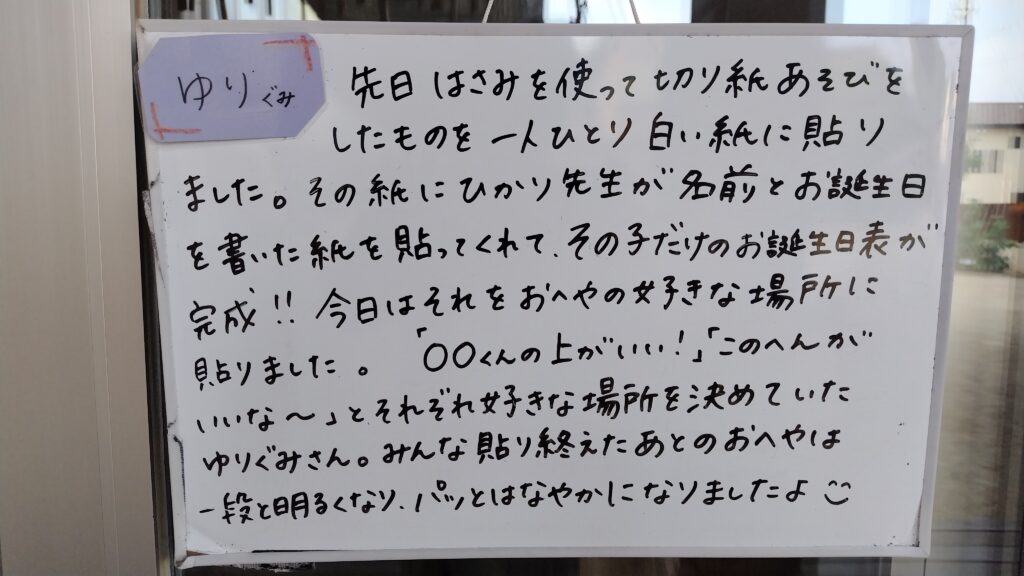 ゆりぐみ
先日はさみを使って切り紙あそびを
したものを一人ひとり白い紙に貼り
ました。その紙にひかり先生が名前とお誕生日
を書いた紙を貼ってくれて、その子だけのお誕生日表が
完成!! 今日はそれをおへやの好きな場所に
貼りました。「〇〇くんの上がいい!」「このへんが
いいな〜」とそれぞれ好きな場所を決めていた
ゆりぐみさん。みんな貼り終えたあとのおへやは
一段と明るくなり、パッとはなやかになりましたよ